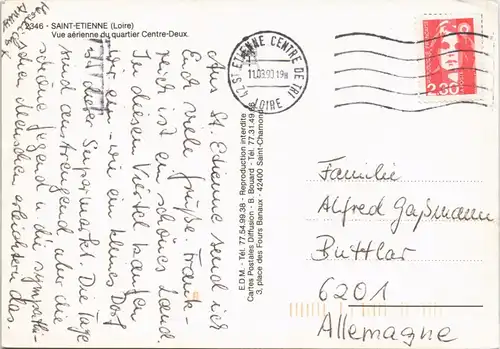 2346 - SAINT-ETIENNE (Loire)
Vue aérienne du quartier Centre-Deux.
42 ST ETIENNE CENTRE DE TRI
11.03.90 19H
LOIRE
2,30
Aus St. Etienne send ich
Euch viele Grüße. Frank-
reich ist ein schönes Land.
In diesem Viertel kaufen
wir ein - wie ein kleines Dorf
ist dieser Supermarkt. Die Tage
sind anstrengend, aber die
schöne Gegend u. die sympathi-
schen Menschen erleichtern das.
E.D.M. - Tél. 77.54.99.38 - Reproduction interdite
Cartes Postales Diffusion - B. Bouard - Tél. 77.31.49.58
3, place des Fours Banaux - 42400 Saint-Chamond
Familie
Alfred Gaßmann
Buttlar
6201
Allemagne